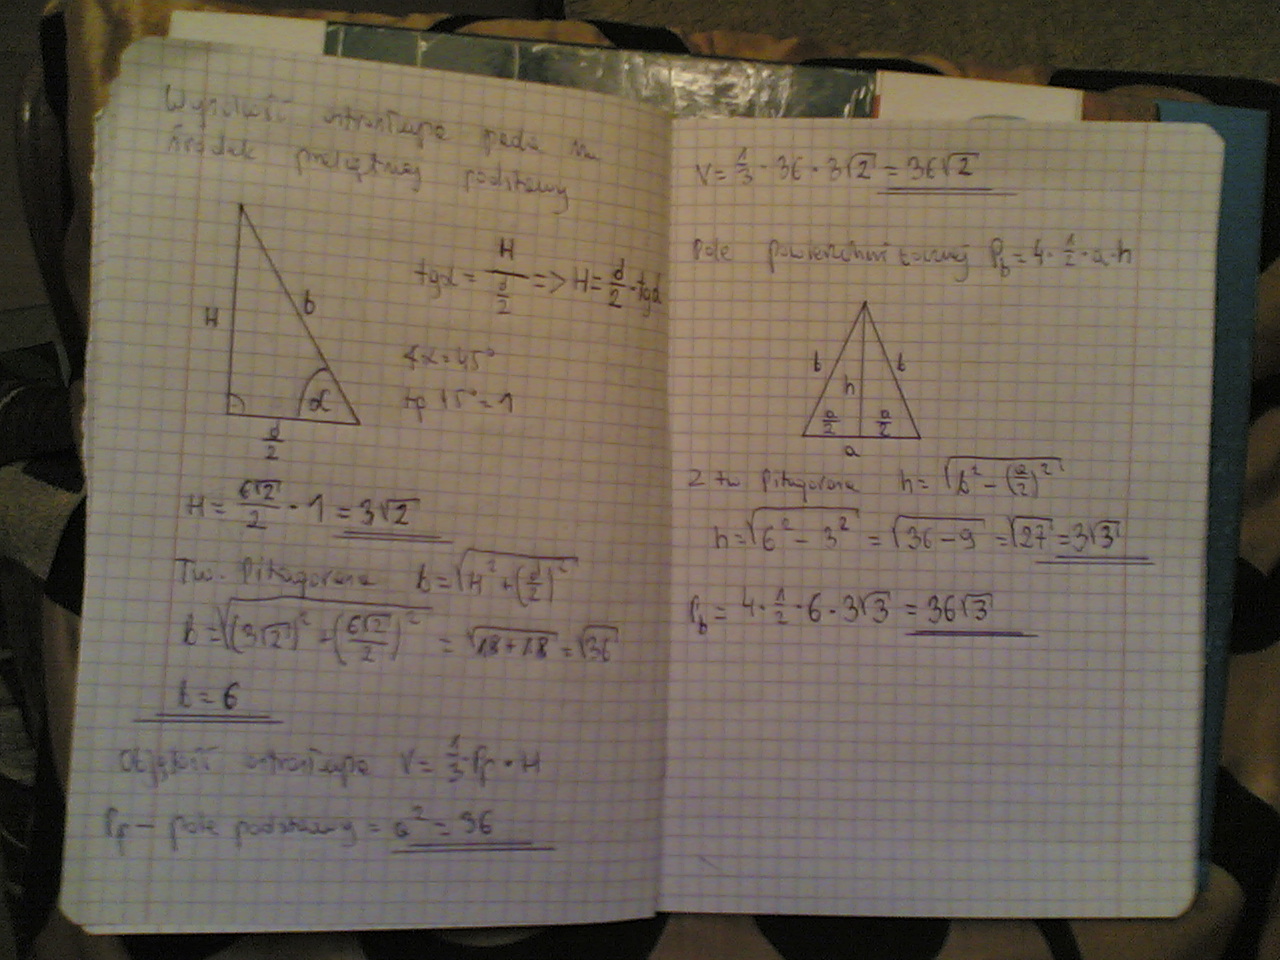 Wysokość ostrosłupa pada na
środek przekątnej podstawy
H
b
α
d/2
tgα = H/(d/2) => H = d/2 · tgα
∢α = 45°
tg 45° = 1
H = 6√2/2 · 1 = 3√2
Tw. Pitagorasa b = √(H² + (d/2)²)
b = √((3√2)² + (6√2/2)²) = √(18+18) = √36
b = 6
Objętość ostrosłupa V = 1/3 · Pp · H
Pp – pole podstawy = a² = 36
V = 1/3 · 36 · 3√2 = 36√2
Pole powierzchni bocznej Pb = 4 · 1/2 · a · h
b
b
h
a/2
a/2
a
Z tw Pitagorasa h = √(b² – (a/2)²)
h = √(6² – 3²) = √(36 – 9) = √27 = 3√3
Pb = 4 · 1/2 · 6 · 3√3 = 36√3